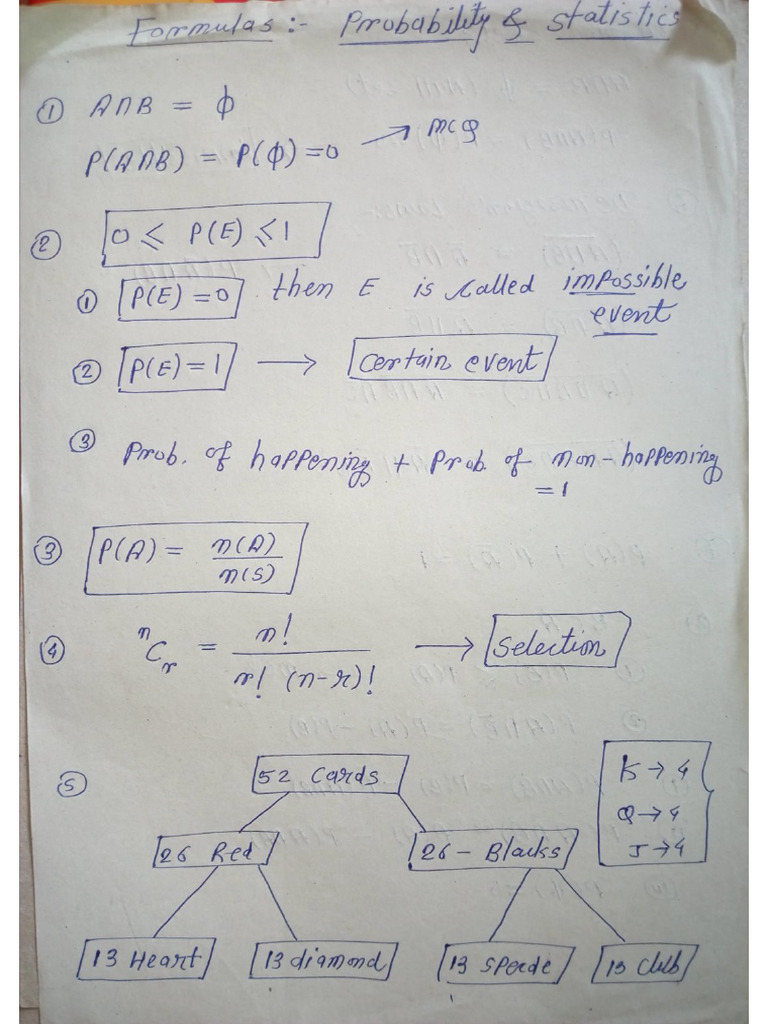 Formulas :- Probability & Statistics
① A∩B = ϕ
P(A∩B) = P(ϕ) = 0 → MCQ
② 0 ⩽ P(E) ⩽ 1
① P(E) = 0 then E is called impossible
event
② P(E) = 1 → Certain event
③ Prob. of happening + Prob. of non-happening
= 1
③ P(A) = n(A)/n(S)
④ ⁿCᵣ = n!/r! (n-r)! → Selection
⑤ 52 Cards
K → 4
Q → 4
J → 4
26 Red 26 - Blacks
13 Heart 13 diamond 13 Speede 13 Club